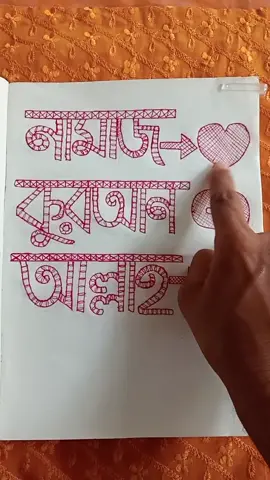 নামাজ
কুরআন
আল্লাহ